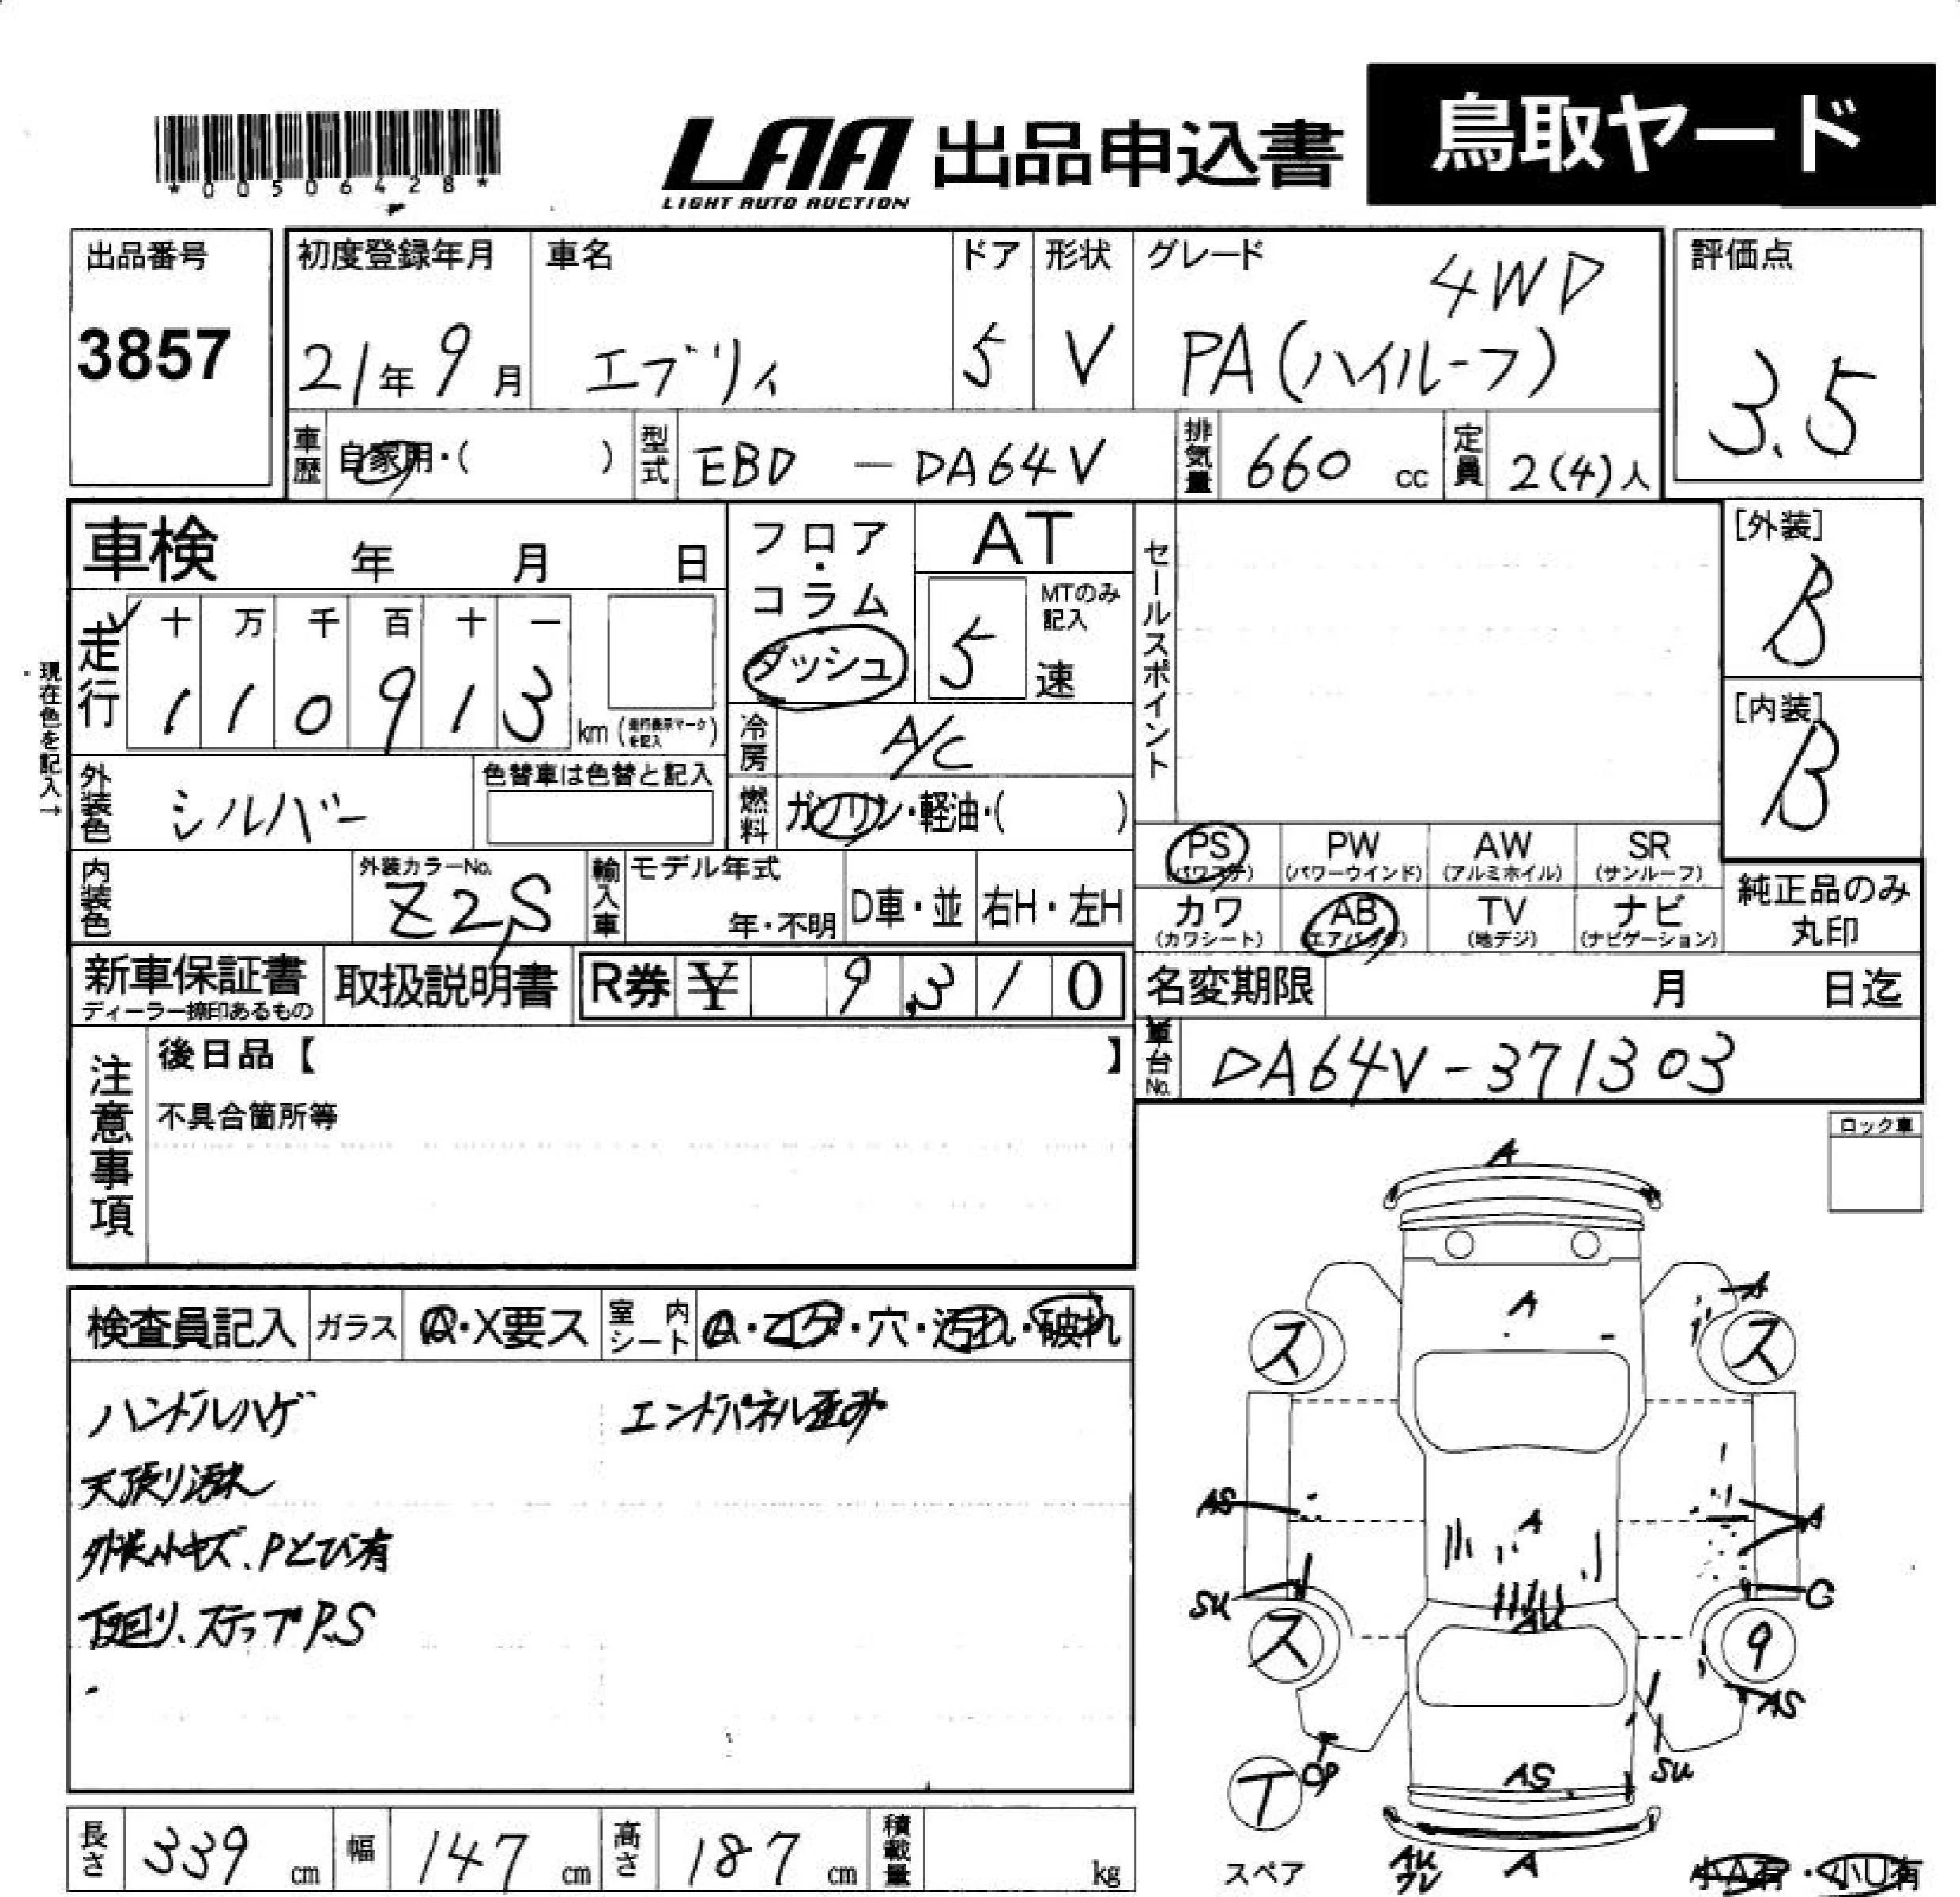 *00506428*
LAA 出品申込書 鳥取ヤード
LIGHT AUTO AUCTION
出品番号 3857
初度登録年月 21年9月
車名 エブリィ
ドア 5
形状 V
グレード 4WD
PA(ハイルーフ)
評価点 3.5
車歴 自家用・( )
型式 EBD - DA64V
排気量 660 cc
定員 2(4)人
車検 年 月 日
フロア・コラム ダッシュ
AT
5 速 MTのみ記入
セールスポイント
[外装] B
[内装] B
現在色を記入→
走行 十 万 千 百 十 一
1 1 0 9 1 3 km (走行表示マークを記入)
冷房 A/C
外装色 シルバー
色替車は色替と記入
燃料 ガソリン・軽油・( )
内装色
外装カラーNo. Z2S
輸入車 モデル年式 年・不明 D車・並 右H・左H
PS (パワステ)
PW (パワーウインド)
AW (アルミホイル)
SR (サンルーフ)
カワ (カワシート)
AB (エアバック)
TV (地デジ)
ナビ (ナビゲーション)
純正品のみ丸印
新車保証書 ディーラー捺印あるもの
取扱説明書
R券 ¥ 9,310
名変期限 月 日迄
車台No. DA64V-371303
注意事項
後日品【 】
不具合箇所等
ロック車
検査員記入 ガラス A・X要ス 室内シート A・コゲ・穴・汚れ・破れ
ハンドルハゲ
エンドパネル歪み
天張り汚れ
外装小キズ、Pとび有
下回り、ステップP.S
A
A
A
ス
ス
AS
A
A
SU
AU
C
ス
9
AS
OP
AS
SU
T
スペア
AU
ワレ
A
小A有・小U有
長さ 339 cm
幅 147 cm
高さ 187 cm
積載量 kg